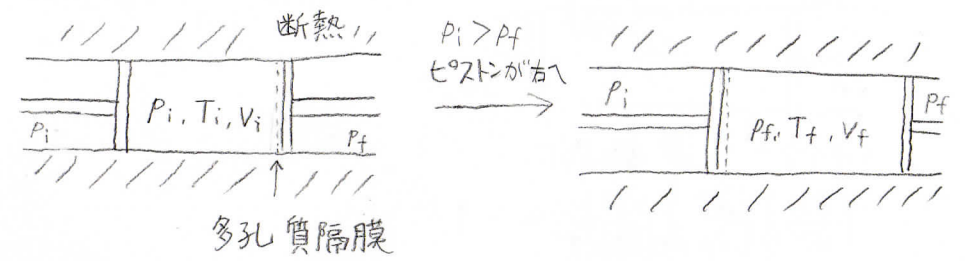 断熱
Pi, Ti, Vi
Pi
Pf
多孔質隔膜
Pi>Pf
ピストンが右へ
Pi
Pf, Tf, Vf
Pf